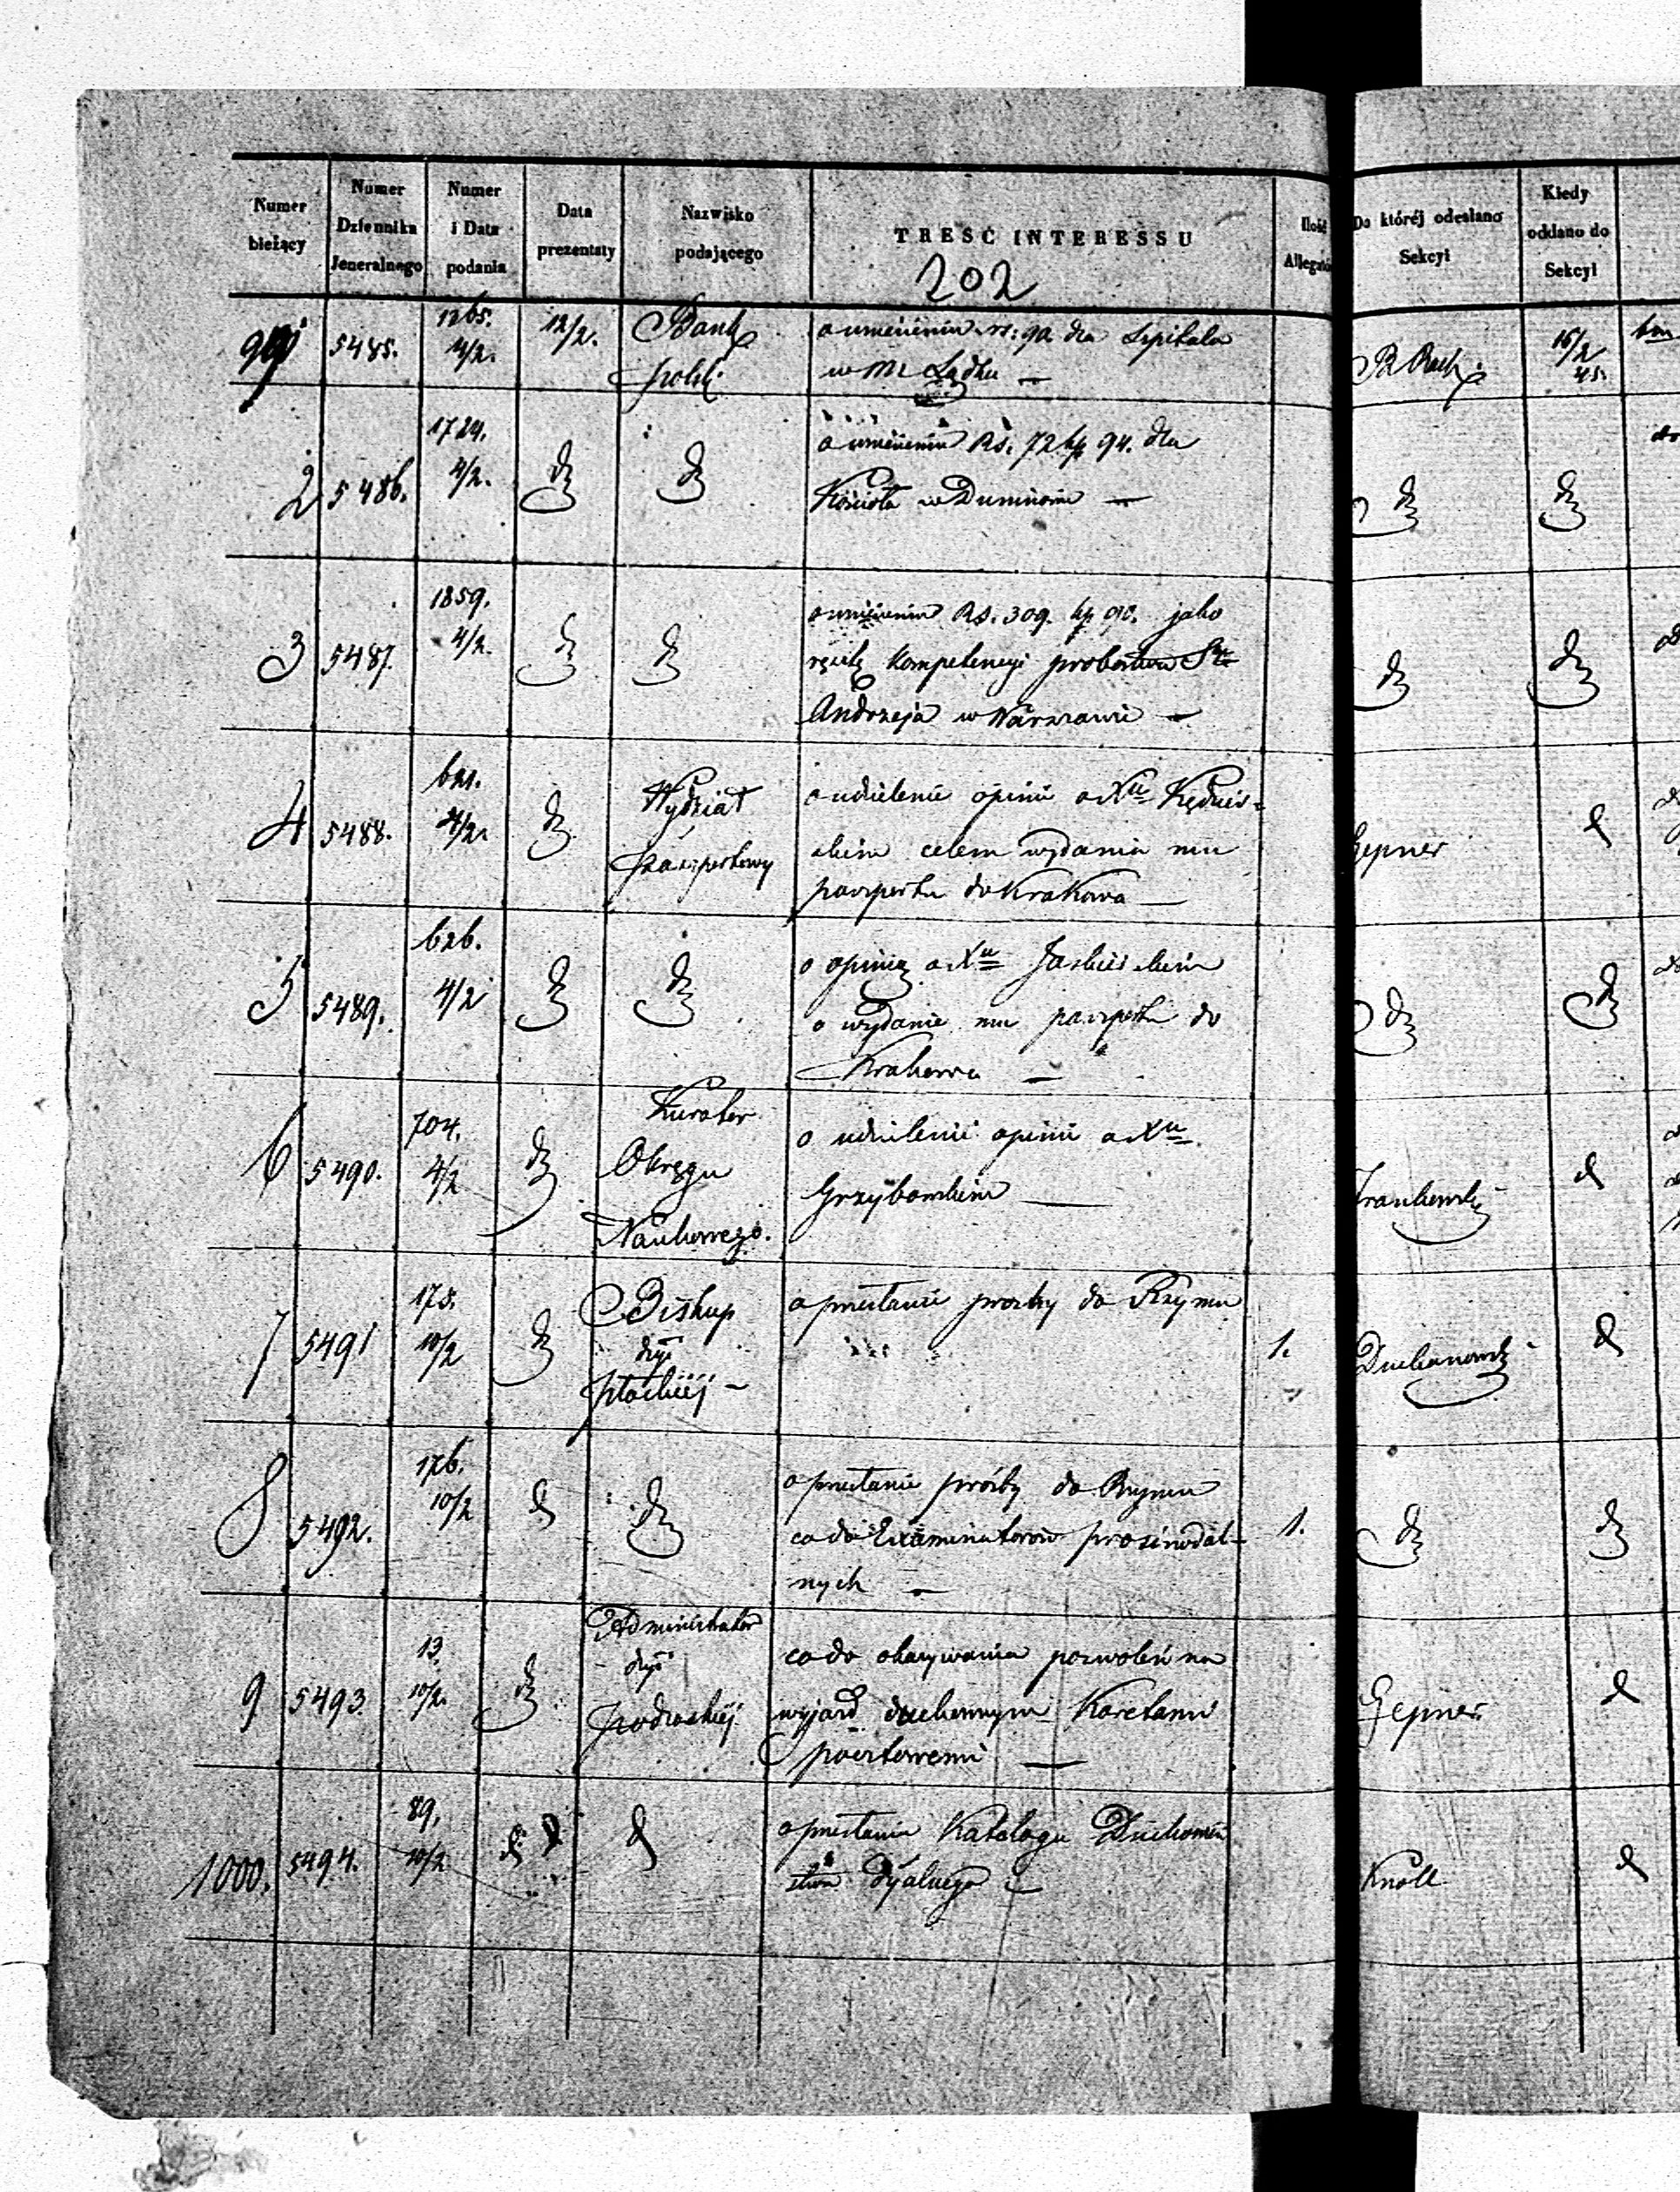 Numer bieżący
Numer Dziennika Jeneralnego
Numer i Data podania
Data prezentaty
Nazwisko podającego
TRESĆ INTERESSU
Ilość
Do któréj odesłano Sekcyi
Kiedy oddano do Sekcyi
202
991 5485. 1265. 4/2. 12/2. Bank
Polski
w M. Lądku —
15/2 45.
2 5486. 1724. 4/2. d
Rs. 72 kp 94. dla
Kościoła w —
d d
3 5487. 1859. 4/2. d d
Rs. 309. kp 90. jako
kompetencyi probostwa Sgo
Andrzeja w Warszawie —
d d
4 5488. 621. 4/2. d Wydział
Paszportowy
o udzielenie opinii o Xu
celem wydania mu
paszportu do Krakowa —
Gepner d
5 5489. 626. 4/2 d d
o opinię o Xu
o wydanie mu paszportu do
Krakowa —
d d
6 5490. 704. 4/2 d Kurator
Okręgu
Naukowego.
o udzielenie opinii o Xu
Grzybowskim —
d
7 5491 175. 10/2 d Biskup
dyi
Płockiéj —
o przesłanie prośby do Rzymu
1. d
8 5492. 176. 10/2 d d
o przesłanie prośby do Rzymu
co do Examinatorów prosinodal-
nych —
1. d d
9 5493. 13. 10/2. d Administrator
dyi
Podlaskiéj
co do okazywania pozwoleń na
wyjazd duchownym Karetami
pocztowemi —
Gepner. d
1000. 5494. 89. 10/2 d d
o przesłanie Katalogu Duchowień
stwa Dyalnego —
Knoll d